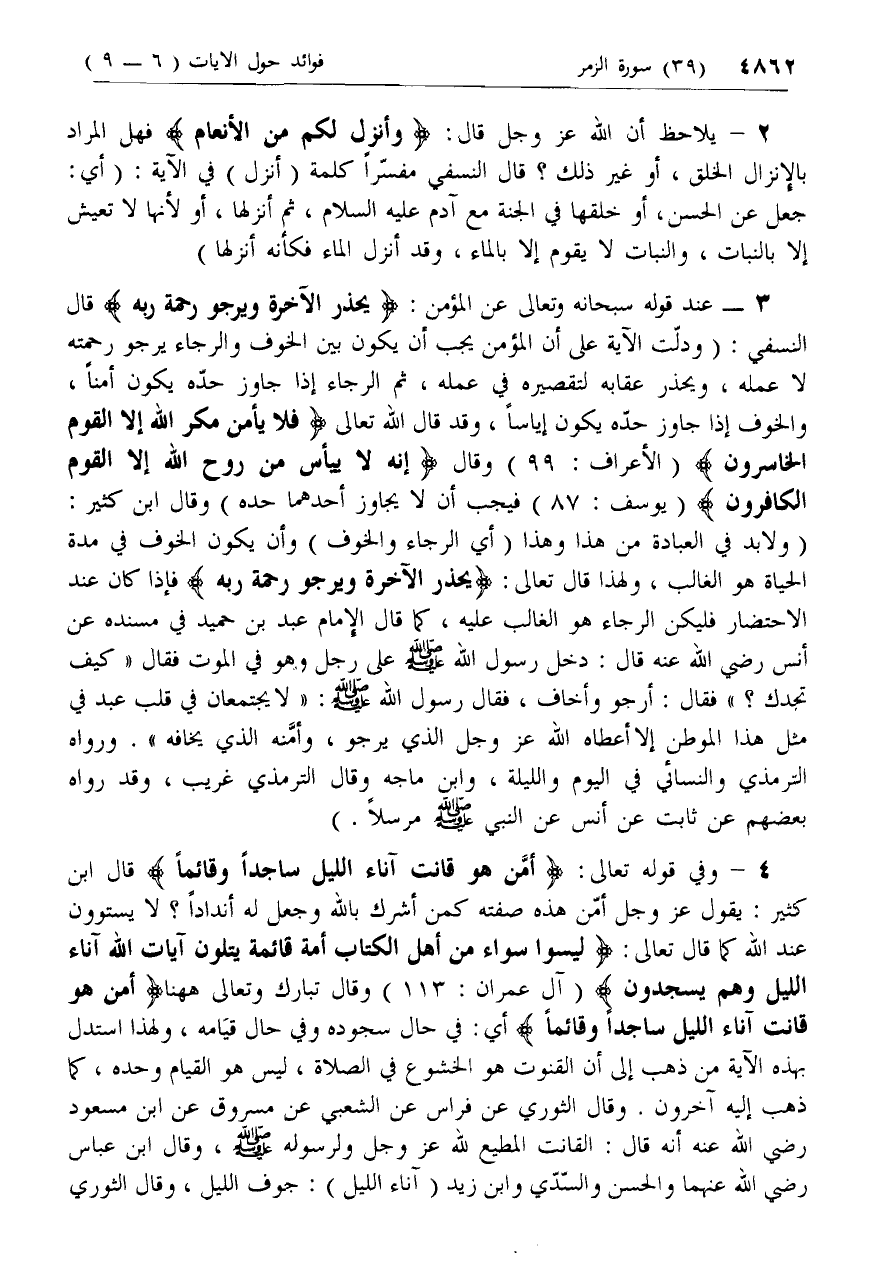 ٤٨٦٢ (٣٩) سورة الزمر فوائد حول الآيات ( ٦ — ٩ )
٢ – يلاحظ أن الله عز وجل قال: ﴿ وأنزل لكم من الأنعام ﴾ فهل المراد
بالإنزال الخلق ، أو غير ذلك ؟ قال النسفي مفسّراً كلمة ( أنزل ) في الآية : ( أي :
جعل عن الحسن، أو خلقها في الجنة مع آدم عليه السلام ، ثم أنزلها ، أو لأنها لا تعيش
إلا بالنبات ، والنبات لا يقوم إلا بالماء ، وقد أنزل الماء فكأنه أنزلها )
٣ — عند قوله سبحانه وتعالى عن المؤمن : ﴿ يحذر الآخرة ويرجو رحمة ربه ﴾ قال
النسفي : ( ودلّت الآية على أن المؤمن يجب أن يكون بين الخوف والرجاء يرجو رحمته
لا عمله ، ويحذر عقابه لتقصيره في عمله ، ثم الرجاء إذا جاوز حدّه يكون أمناً ،
والخوف إذا جاوز حدّه يكون إياساً ، وقد قال الله تعالى ﴿ فلا يأمن مكر الله إلا القوم
الخاسرون ﴾ ( الأعراف : ٩٩ ) وقال ﴿ إنه لا ييأس من روح الله إلا القوم
الكافرون ﴾ ( يوسف : ٨٧ ) فيجب أن لا يجاوز أحدهما حده ) وقال ابن كثير :
( ولابد في العبادة من هذا وهذا ( أي الرجاء والخوف ) وأن يكون الخوف في مدة
الحياة هو الغالب ، ولهذا قال تعالى : ﴿يحذر الآخرة ويرجو رحمة ربه ﴾ فإذا كان عند
الاحتضار فليكن الرجاء هو الغالب عليه ، كما قال الإمام عبد بن حميد في مسنده عن
أنس رضي الله عنه قال : دخل رسول الله ﷺ على رجل وهو في الموت فقال « كيف
تجدك ؟ » فقال : أرجو وأخاف ، فقال رسول الله ﷺ : « لا يجتمعان في قلب عبد في
مثل هذا الموطن إلا أعطاه الله عز وجل الذي يرجو ، وأمَّنه الذي يخافه » . ورواه
الترمذي والنسائي في اليوم والليلة ، وابن ماجه وقال الترمذي غريب ، وقد رواه
بعضهم عن ثابت عن أنس عن النبي ﷺ مرسلاً . )
٤ – وفي قوله تعالى : ﴿ أمَّن هو قانت آناء الليل ساجداً وقائماً ﴾ قال ابن
كثير : يقول عز وجل أمّن هذه صفته كمن أشرك بالله وجعل له أنداداً ؟ لا يستوون
عند الله كما قال تعالى : ﴿ ليسوا سواء من أهل الكتاب أمة قائمة يتلون آيات الله آناء
الليل وهم يسجدون ﴾ ( آل عمران : ١١٣ ) وقال تبارك وتعالى ههنا﴿ أمن هو
قانت آناء الليل ساجداً وقائماً ﴾ أي : في حال سجوده وفي حال قيامه ، ولهذا استدل
بهذه الآية من ذهب إلى أن القنوت هو الخشوع في الصلاة ، ليس هو القيام وحده ، كما
ذهب إليه آخرون . وقال الثوري عن فراس عن الشعبي عن مسروق عن ابن مسعود
رضي الله عنه أنه قال : القانت المطيع لله عز وجل ولرسوله ﷺ ، وقال ابن عباس
رضي الله عنهما والحسن والسّدّي وابن زيد ( آناء الليل ) : جوف الليل ، وقال الثوري